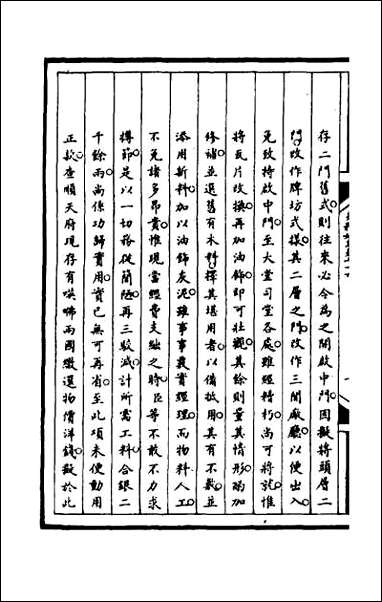 存二門舊式則往來必令為之開啟中門因擬將頭層二
門改作牌坊式樣其二層之門改作三間厰廳以便出入
免致持啟中門至大堂司堂各處雖經精朽尚可將就惟
將瓦片改換再加油飾即可壯觀其餘則量其情形酌加
修補並選舊有木料擇其堪用者以備抵用其有不敷並
添用新料加以油飾灰泥雖事事覈實經理而物料人工
不免諸多昂貴惟現當經費支絀之時臣等不敢不力求
撙節是以一切務從簡陋再三駁減計所需工料合銀二
千餘兩尚係功歸實用實已無可再省至此項未便動用
正款查順天府現存有𠸄咈兩國繳還物價洋錢擬於此